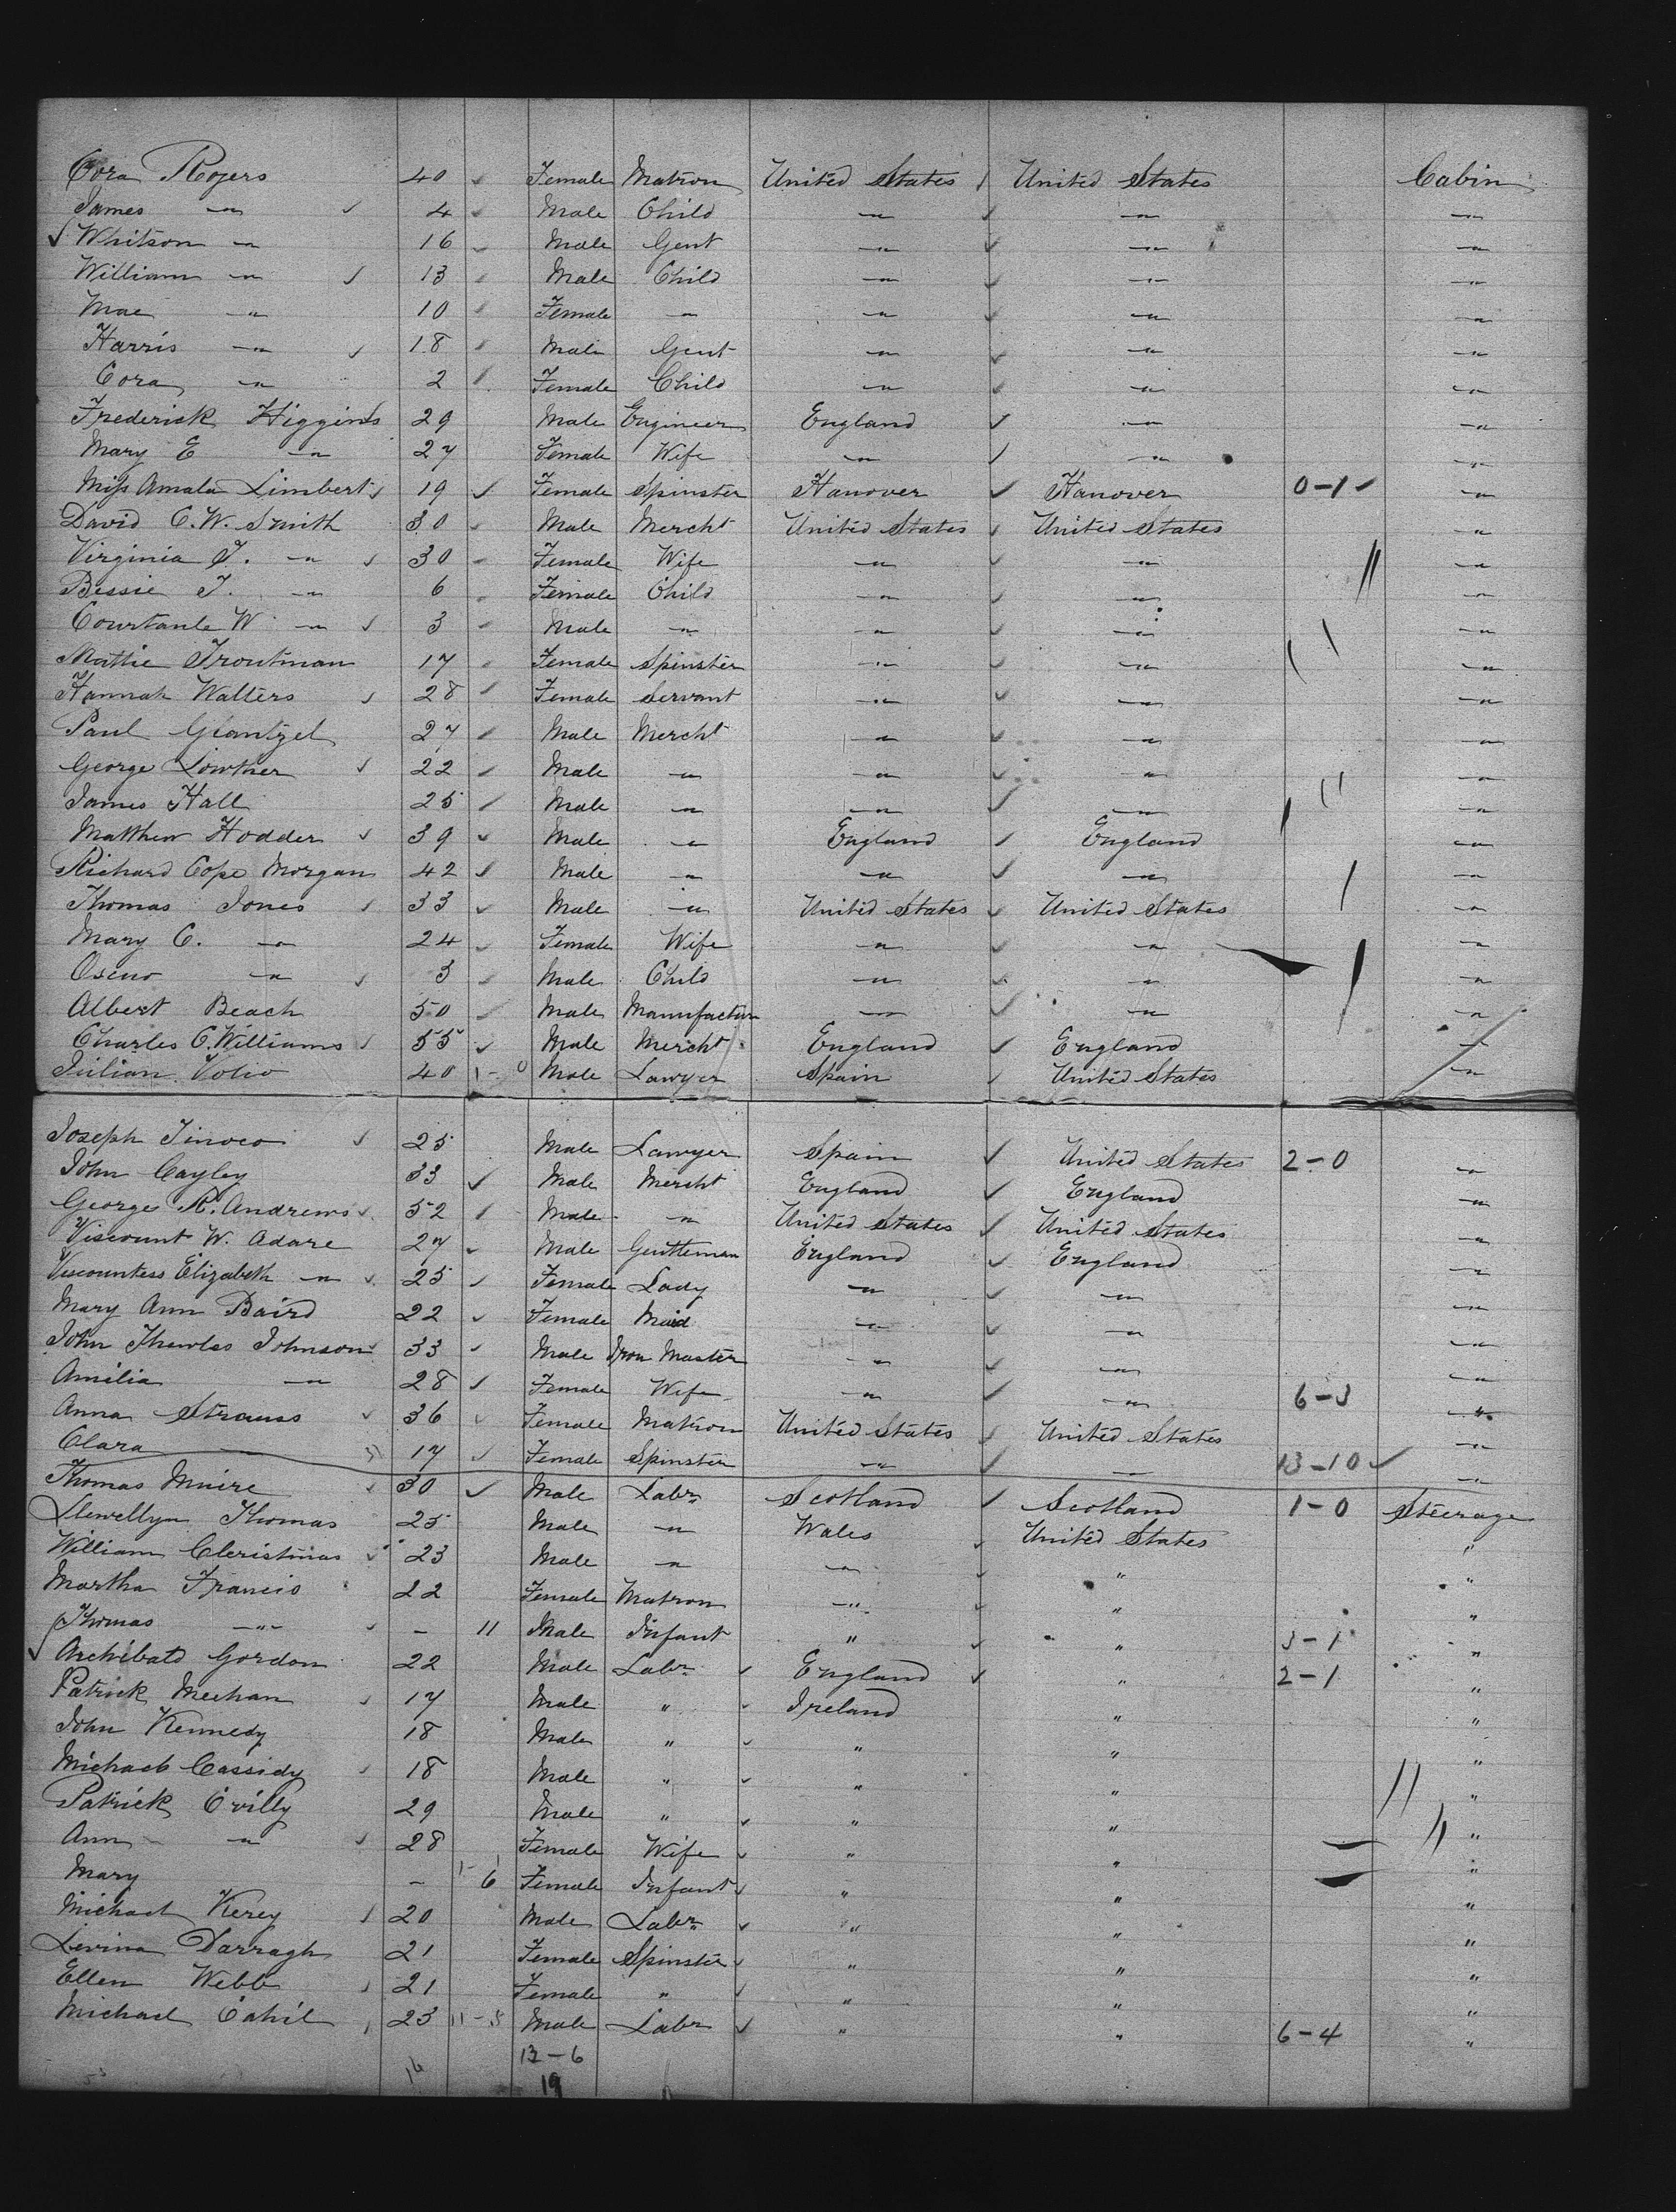 Cora Rogers 40 Female Matron United States United States Cabin
James " 4 Male Child " " "
Whitson " 16 Male Gent " " "
William " 13 Male Child " " "
Mae " 10 Female " " " "
Harris " 18 Male Gent " " "
Cora " 2 Female Child " " "
Frederick Higgins 29 Male Engineer England " "
Mary E " 27 Female Wife " " "
Miss Amala Limbert 19 Female Spinster Hanover Hanover 0-1 "
David C. W. Smith 30 Male Mercht United States United States "
Virginia J. " 30 Female Wife " " "
Bessie J. " 6 Female Child " " "
W " 3 Male " " " "
Mattie Troutman 17 Female Spinster " " "
Hannah Walters 28 Female Servant " " "
Paul Glantzel 27 Male Mercht " " "
George Lowther 22 Male " " " "
James Hall 25 Male " " " "
Matthew Hodder 39 Male " England England "
Richard Cope Morgan 42 Male " " " "
Thomas Jones 33 Male " United States United States "
Mary C. " 24 Female Wife " " "
" 3 Male Child " " "
Albert Beach 50 Male Manufactur " " "
Charles C. Williams 55 Male Mercht England England "
Julian Volio 40 1-0 Male Lawyer Spain United States "
Joseph Tinoco 25 Male Lawyer Spain United States 2-0 "
John Cayley 33 Male Mercht England England "
George R. Andrews 52 Male " United States United States "
Viscount W. Adare 27 Male Gentleman England England "
Viscountess Elizabeth " 25 Female Lady " " "
Mary Ann Baird 22 Female Maid " " "
John Thewles Johnson 33 Male Iron Master " " "
Amilia " 28 Female Wife " " 6-3 "
Anna Strauss 36 Female Matron United States United States "
Clara " 17 Female Spinster " " 13-10 "
Thomas Muire 30 Male Labr Scotland Scotland 1-0 Steerage
Llewellyn Thomas 25 Male " Wales United States "
William Christmas 23 Male " " " "
Martha Francis 22 Female Matron " " "
Thomas " - 11 Male Infant " " 3-1 "
Archibald Gordon 22 Male Labr England " 2-1 "
Patrick Meehan 17 Male " Ireland " "
John Kennedy 18 Male " " " "
Michael Cassidy 18 Male " " " "
Patrick 29 Male " " " "
Ann " 28 Female Wife " " "
Mary - 6 Female Infant " " "
Michael Kerey 20 Male Labr " " "
Levina Darragh 21 Female Spinster " " "
Ellen Webb 21 Female " " " "
Michael Cahil 23 11-5 Male Labr " " 6-4 "
16 12-6
19